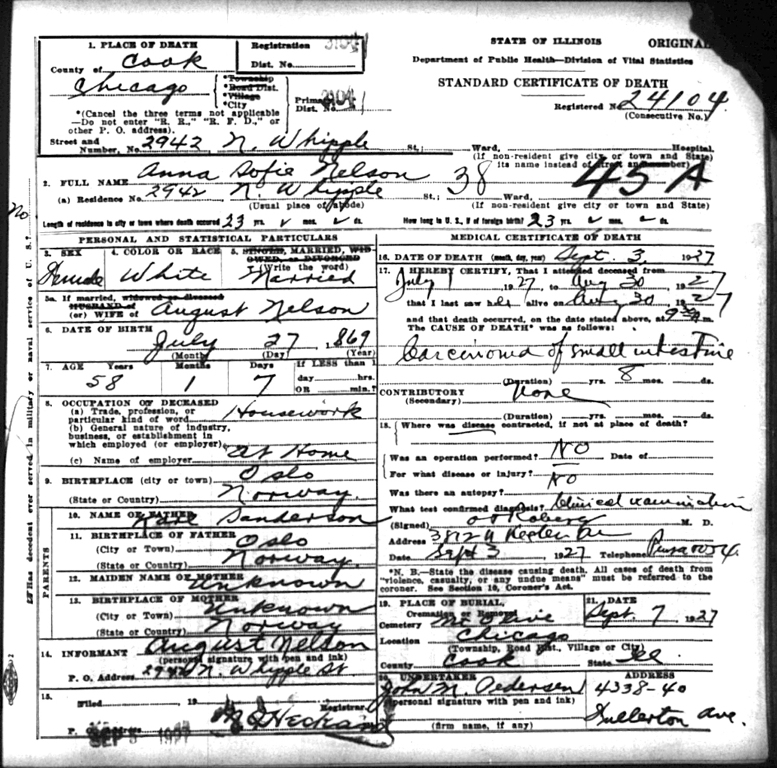 STATE OF ILLINOIS ORIGINAL
Department of Public Health—Division of Vital Statistics
STANDARD CERTIFICATE OF DEATH
Registered No. 24104
(Consecutive No.)
1. PLACE OF DEATH
County of Cook
Chicago
*Township
*Road Dist.
*Village
*City
Registration
Dist. No. 3104
Primary
Dist. 3104
*(Cancel the three terms not applicable
—Do not enter "R. R.," "R. F. D.," or
other P. O. address).
Street and
Number, No. 2942 N. Whipple St.; Ward, Hospital.
(If non-resident give city or town and State)
its name instead of street and number)
2. FULL NAME Anna Sofie Nelson
(a) Residence No. 2942 N. Whipple St.; 38 Ward, 45A
(Usual place of abode) (If non-resident give city or town and State)
Length of residence in city or town where death occurred 23 yrs. mos. ds. How long in U. S., if of foreign birth? 23 yrs. mos. ds.
PERSONAL AND STATISTICAL PARTICULARS
3. SEX
Female
4. COLOR OR RACE
White
5. SINGLE, MARRIED, WID-
OWED, OR DIVORCED
(Write the word)
Married
5a. If married, widowed or divorced
HUSBAND of
(or) WIFE of August Nelson
6. DATE OF BIRTH
July 27 1869
(Month) (Day) (Year)
7. AGE Years Months Days If LESS than 1
58 1 7 day hrs.
OR min.?
8. OCCUPATION OF DECEASED
(a) Trade, profession, or
particular kind of work Housework
(b) General nature of industry,
business, or establishment in
which employed (or employer)
(c) Name of employer At Home
9. BIRTHPLACE (city or town) Oslo
(State or Country) Norway.
PARENTS
10. NAME OF FATHER
Karl Sanderson
11. BIRTHPLACE OF FATHER
(City or Town) Oslo
(State or Country) Norway.
12. MAIDEN NAME OF MOTHER
Unknown
13. BIRTHPLACE OF MOTHER
(City or Town) Unknown
(State or Country) Norway
14. INFORMANT August Nelson
(personal signature with pen and ink)
P. O. Address 2942 N. Whipple St
15.
Filed 19
Registrar
SEP 5 1927
23 Has decedent ever served in military or naval service of U. S.? No
MEDICAL CERTIFICATE OF DEATH
16. DATE OF DEATH (month, day, year) Sept. 3, 1927
17. I HEREBY CERTIFY, That I attended deceased from
July 1 1927, to Aug 30 1927
that I last saw her alive on Aug 30 1927
and that death occurred, on the date stated above, at 9 m.
The CAUSE OF DEATH* was as follows:
Carcinoma of small intestine
(Duration) yrs. 8 mos. ds.
CONTRIBUTORY None
(Secondary)
(Duration) yrs. mos. ds.
18. Where was disease contracted, if not at place of death?
Was an operation performed? No Date of
For what disease or injury?
Was there an autopsy? No
What test confirmed diagnosis? Clinical examination
(Signed) M. D.
Address 3812
Date Sept 3 1927 Telephone
*N. B.—State the disease causing death. All cases of death from
"violence, casualty, or any undue means" must be referred to the
coroner. See Section 10, Coroner's Act.
19. PLACE OF BURIAL,
Cremation or Removal
Cemetery Mt Olive
Location Chicago
(Township, Road Dist., Village or City)
County Cook State Ill
21. DATE
Sept. 7, 1927
20. UNDERTAKER
John M. Pedersen
(personal signature with pen and ink)
(firm name, if any)
ADDRESS
4338-40
Fullerton Ave.